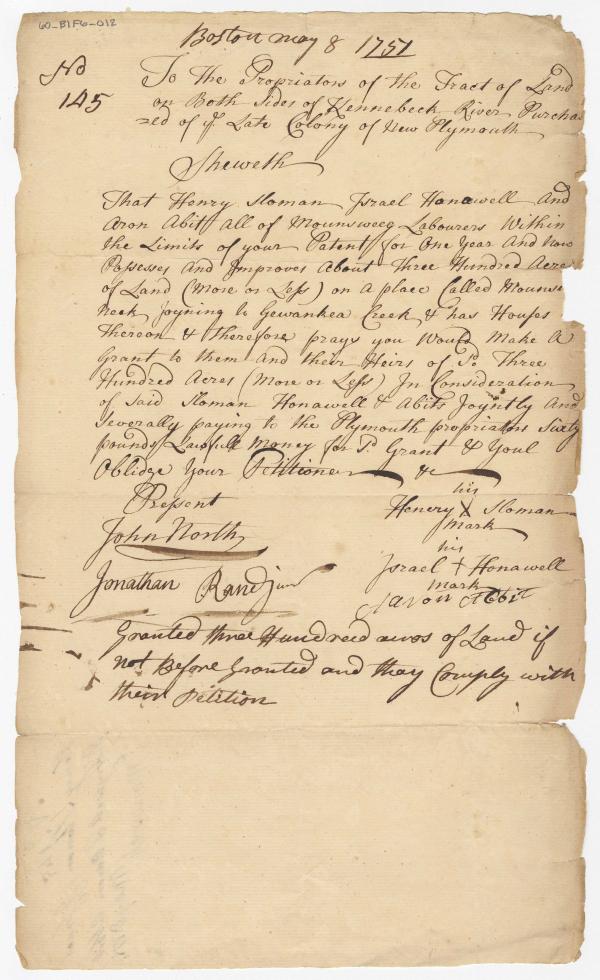 60-B1F6-012
Boston may 8 1751
No
145
To the Propriators of the Tract of Land
on Both Sides of Kennebeck River Purcha
sed of ye Late Colony of New Plymouth
Sheweth
That Henry Sloman Israel Honawell And
Aron Abitt all of Mounsweeg Labourers Within
the Limits of your Patent for One Year And Now
Possesses And Improves About Three Hundred Acre
of Land (More or Less) on a place Called Mounse
neck joyning to Gewankea Creek & has Houses
Thereon & therefore prays you Would Make A
Grant to them and their Heirs of sd. Three
Hundred Acres (More or Less) In Consideration
of Said Sloman Honawell & Abits Joyntly And
Severally paying to the Plymouth propriators Sixty
pounds Lawfull Money for sd. Grant & Youl
Oblidge Your Petitioners &c
Pressent
John North
Jonathan Rand junr
his
Henery X Sloman
Mark
his
Israel † Honawell
mark
Aaron Abbit
Granted three Hundreed acros of Land if
not Before Granted and thay Comply with
their Petition